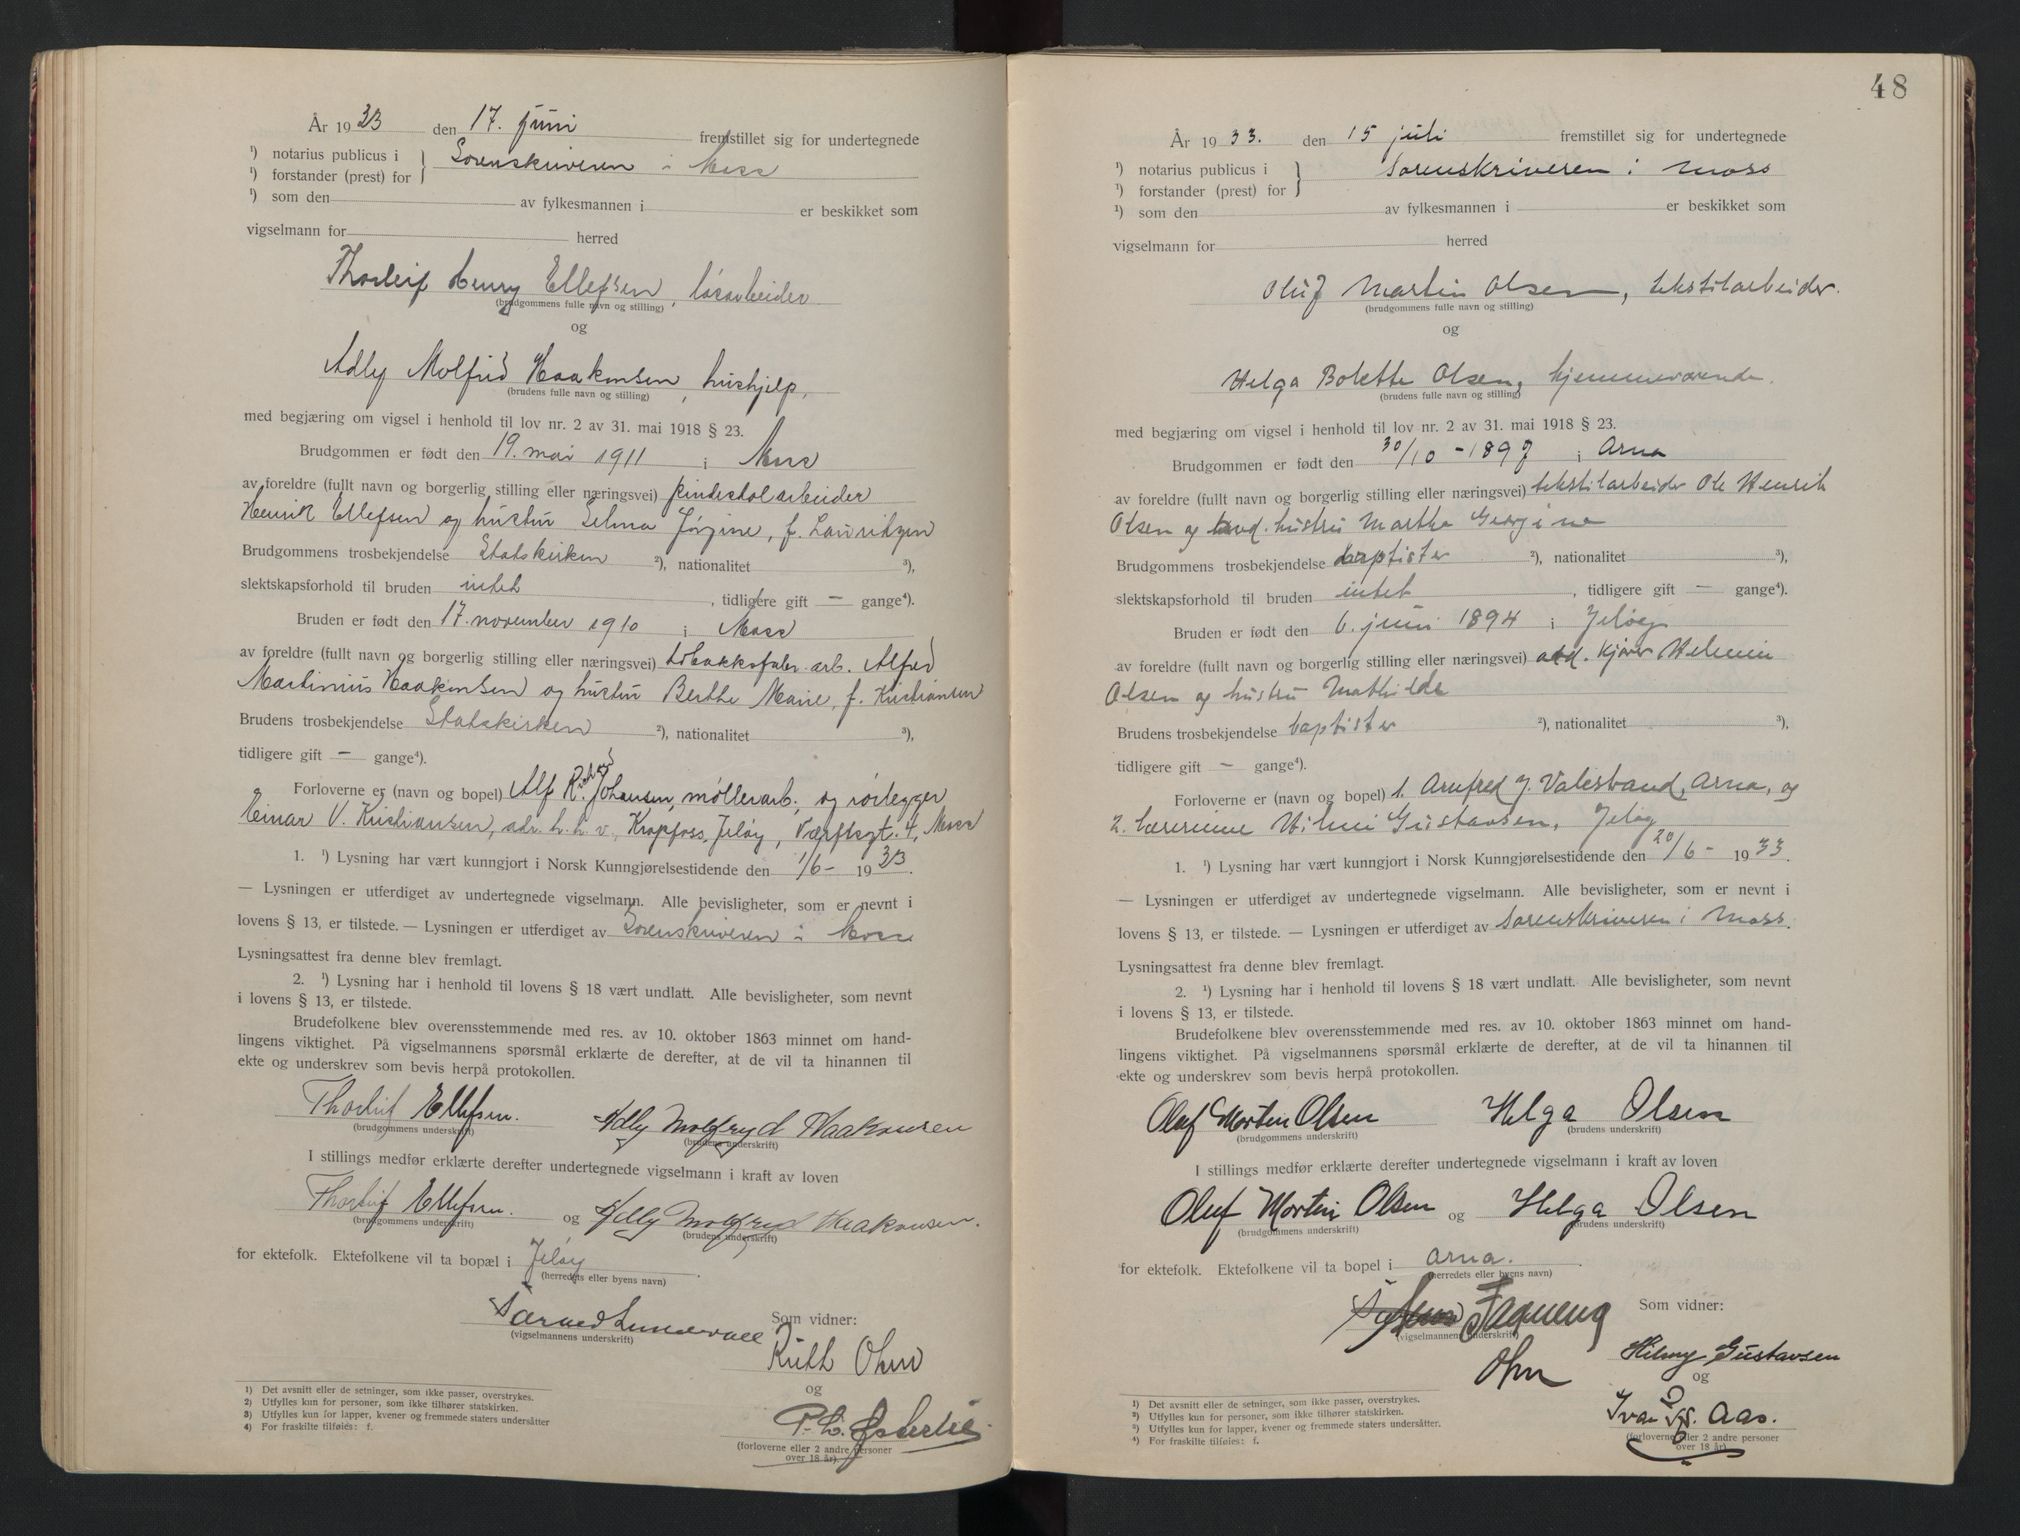 År 1933 den 17. juni fremstillet sig for undertegnede
¹) notarius publicus i } Sorenskriveren i Moss
¹) forstander (prest) for
¹) som den av fylkesmannen i er beskikket som
vigselmann for herred
Thorleif Henry Ellefsen, løsarbeider
(brudgommens fulle navn og stilling)
og
Adly Molfrid Haakonsen, hushjelp,
(brudens fulle navn og stilling)
med begjæring om vigsel i henhold til lov nr. 2 av 31. mai 1918 § 23.
Brudgommen er født den 19. mai 1911 i Moss
av foreldre (fullt navn og borgerlig stilling eller næringsvei) pindestolarbeider
Henrik Ellefsen og hustru Selma Jørgine, f. Lauritzen
Brudgommens trosbekjendelse Statskirken ²), nationalitet ³),
slektskapsforhold til bruden intet, tidligere gift — gange⁴).
Bruden er født den 17. november 1910 i Moss
av foreldre (fullt navn og borgerlig stilling eller næringsvei) tobakksfabr. arb. Alfred
Martinius Haakonsen og hustru Berthe Marie, f. Kristiansen
Brudens trosbekjendelse Statskirken ²), nationalitet ³),
tidligere gift — gange⁴).
Forloverne er (navn og bopel) Alf Richard Johansen, møllerarb., og rørlegger
Einar V. Kristiansen, adr. h. h. v. Krapfoss, Jeløy, Værftsgt. 4, Moss
1. ¹) Lysning har vært kunngjort i Norsk Kunngjørelsestidende den 1/6 - 1933.
— Lysningen er utferdiget av undertegnede vigselmann. Alle bevisligheter, som er nevnt i
lovens § 13, er tilstede. — Lysningen er utferdiget av Sorenskriveren i Moss
Lysningsattest fra denne blev fremlagt.
2. ¹) Lysning har i henhold til lovens § 18 vært undlatt. Alle bevisligheter, som nevnt
i lovens § 13, er tilstede.
Brudefolkene blev overensstemmende med res. av 10. oktober 1863 minnet om hand-
lingens viktighet. På vigselmannens spørsmål erklærte de derefter, at de vil ta hinannen til
ekte og underskrev som bevis herpå protokollen.
Thorleif Ellefsen. Adly Molfryd Haakonsen
(brudgommens underskrift) (brudens underskrift)
I stillings medfør erklærte derefter undertegnede vigselmann i kraft av loven
Thorleif Ellefsen. og Adly Molfryd Haakonsen.
(brudgommens underskrift) (brudens underskrift)
for ektefolk. Ektefolkene vil ta bopæl i Jeløy
(herredets eller byens navn)
Som vidner:
(vigselmannens underskrift)
Ruth Ohm
og
(forloverne eller 2 andre personer
over 18 år).
1) Det avsnitt eller de setninger, som ikke passer, overstrykes.
2) Utfylles kun for personer, som ikke tilhører statskirken.
3) Utfylles kun for lapper, kvener og fremmede staters undersåtter
4) For fraskilte tilføies: f.
48
År 1933. den 15 juli fremstillet sig for undertegnede
¹) notarius publicus i } Sorenskriveren i Moss
¹) forstander (prest) for
¹) som den av fylkesmannen i er beskikket som
vigselmann for herred
Oluf Martin Olsen, tekstilarbeider.
(brudgommens fulle navn og stilling)
og
Helga Bolette Olsen, hjemmeværende.
(brudens fulle navn og stilling)
med begjæring om vigsel i henhold til lov nr. 2 av 31. mai 1918 § 23.
Brudgommen er født den 30/10 - 1897 i Arna
av foreldre (fullt navn og borgerlig stilling eller næringsvei) tekstilarbeider Ole Henrik
Olsen og avd. hustru Martha Georgine
Brudgommens trosbekjendelse baptister ²), nationalitet ³),
slektskapsforhold til bruden intet, tidligere gift — gange⁴).
Bruden er født den 6. juni 1894 i Jeløy
av foreldre (fullt navn og borgerlig stilling eller næringsvei) avd. kjører Helmin
Olsen og hustru Mathilde
Brudens trosbekjendelse baptister ²), nationalitet ³),
tidligere gift — gange⁴).
Forloverne er (navn og bopel) 1. Arnfred J. Valestrand, Arna, og
2. lærerinne Hilmi Gustavsen, Jeløy
1. ¹) Lysning har vært kunngjort i Norsk Kunngjørelsestidende den 20/6 - 1933.
— Lysningen er utferdiget av undertegnede vigselmann. Alle bevisligheter, som er nevnt i
lovens § 13, er tilstede. — Lysningen er utferdiget av Sorenskriveren i Moss.
Lysningsattest fra denne blev fremlagt.
2. ¹) Lysning har i henhold til lovens § 18 vært undlatt. Alle bevisligheter, som nevnt
i lovens § 13, er tilstede.
Brudefolkene blev overensstemmende med res. av 10. oktober 1863 minnet om hand-
lingens viktighet. På vigselmannens spørsmål erklærte de derefter, at de vil ta hinannen til
ekte og underskrev som bevis herpå protokollen.
Oluf Martin Olsen Helga Olsen
(brudgommens underskrift) (brudens underskrift)
I stillings medfør erklærte derefter undertegnede vigselmann i kraft av loven
Oluf Martin Olsen og Helga Olsen
(brudgommens underskrift) (brudens underskrift)
for ektefolk. Ektefolkene vil ta bopel i Arna.
(herredets eller byens navn)
Som vidner:
(vigselmannens underskrift)
Ohm
Hilmy Gustavsen
og
Ivar Aas.
(forloverne eller 2 andre personer
over 18 år).
¹) Det avsnitt eller de setninger, som ikke passer, overstrykes.
²) Utfylles kun for personer, som ikke tilhører statskirken.
³) Utfylles kun for lapper, kvener og fremmede staters undersåtter.
⁴) For fraskilte tilføies: f.